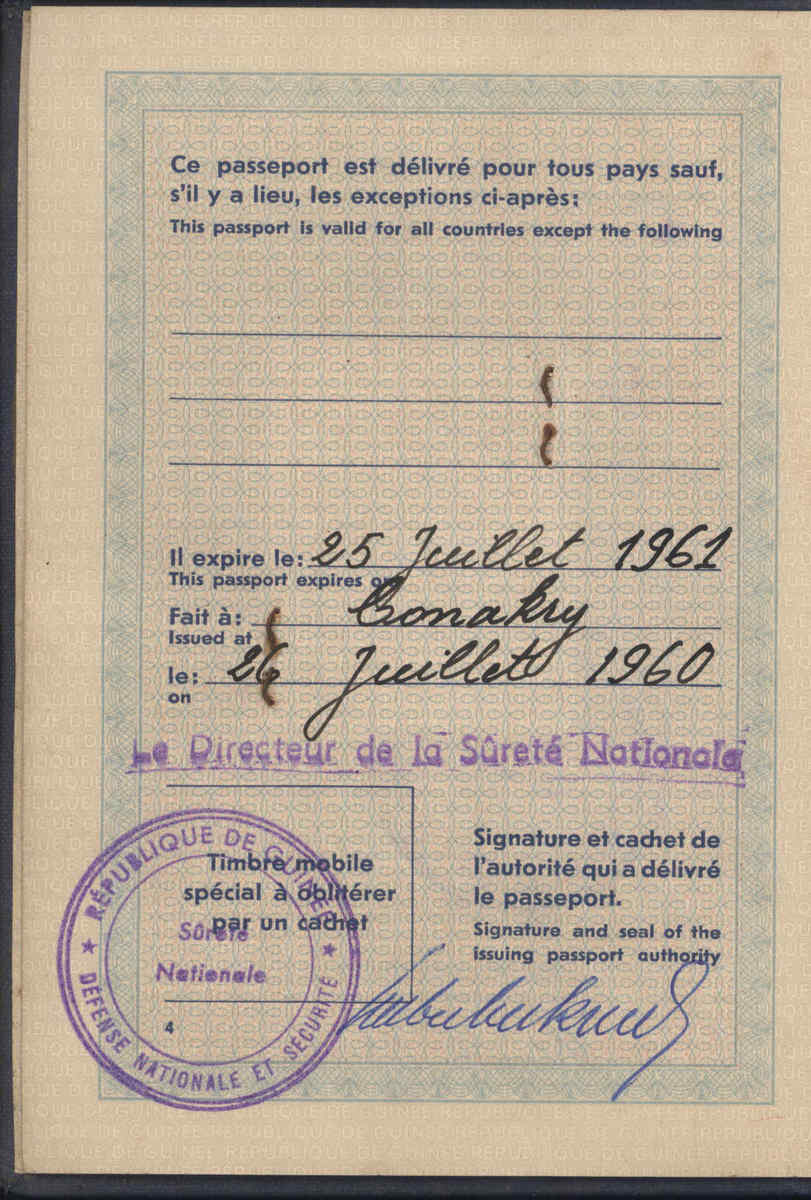 Ce passeport est délivré pour tous pays sauf,
s'il y a lieu, les exceptions ci-après:
This passport is valid for all countries except the following
Il expire le: 25 Juillet 1961
This passport expires on
Fait à: Conakry
Issued at
le: 26 Juillet 1960
on
Le Directeur de la Sûreté Nationale
RÉPUBLIQUE DE GUINÉE
Timbre mobile
spécial à oblitérer
par un cachet
Sûreté
Nationale
DÉFENSE NATIONALE ET SÉCURITÉ
Signature et cachet de
l'autorité qui a délivré
le passeport.
Signature and seal of the
issuing passport authority
4